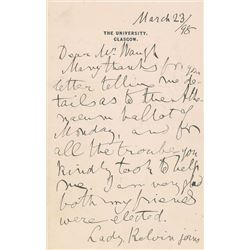 March 23/
/95
THE UNIVERSITY,
GLASGOW.
Dear Mr Waugh
Many thanks for your
letter telling me de-
tails as to the Athe-
naeum ballot of
Monday, and for
all the trouble you
kindly took to help
me. I am very glad
both my friends
were elected.
Lady Kelvin joins